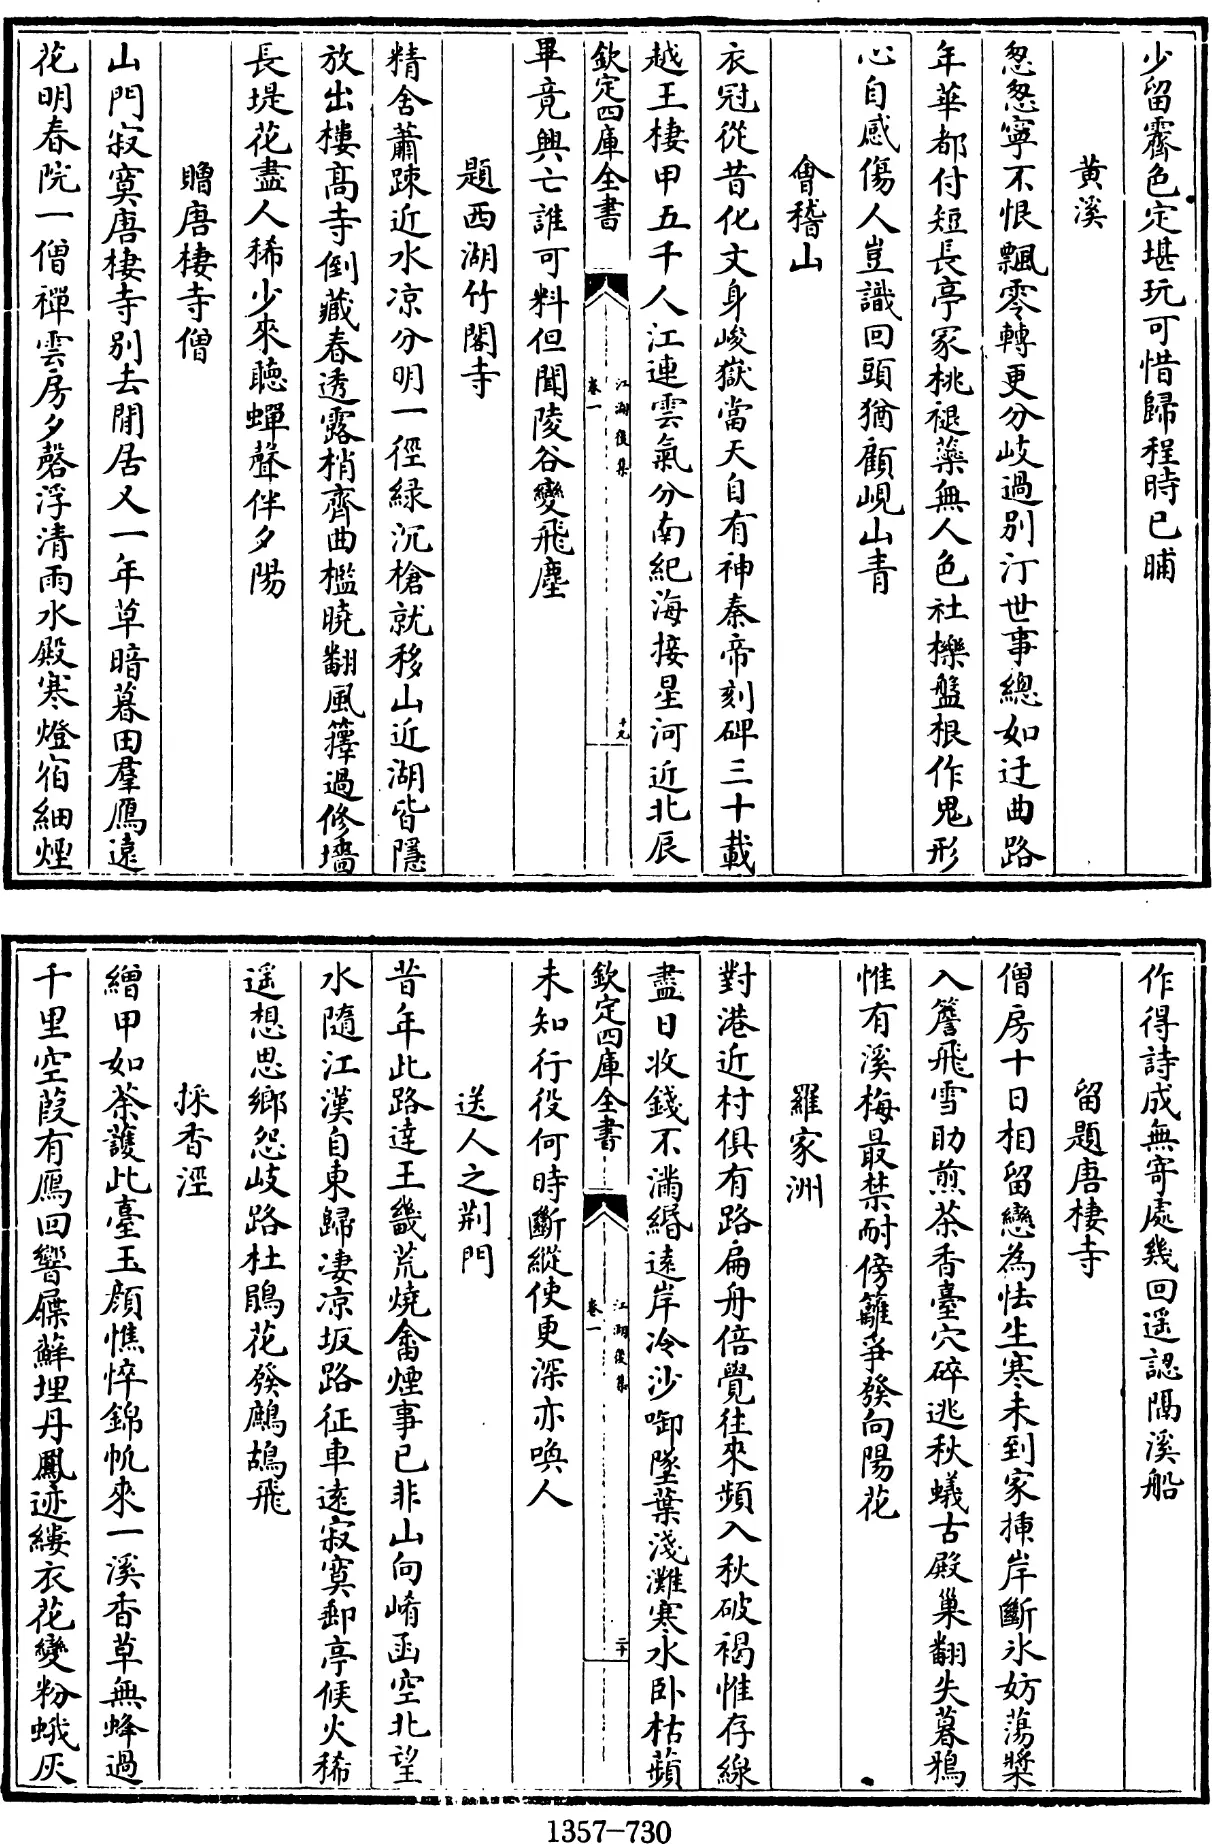 少留霽色定堪玩可惜歸程時已晡
黄溪
怱怱寧不恨飄零轉更分岐過别汀世事總如迂曲路
年華都付短長亭冢桃褪藥無人色社櫟盤根作鬼形
心自感傷人豈識回頭猶顧峴山青
會稽山
衣冠從昔化文身峻嶽當天自有神秦帝刻碑三十載
越王棲甲五千人江連雲氣分南紀海接星河近北辰
欽定四庫全書
江湖後集
卷一
十九
畢竟興亡誰可料但聞陵谷變飛塵
題西湖竹閣寺
精舍蕭踈近水凉分明一徑緑沉槍就移山近湖皆隱
放出樓髙寺倒藏春透露梢齊曲檻暁翻風籜過修墻
長堤花盡人稀少來聴蟬聲伴夕陽
贈唐棲寺僧
山門寂寞唐棲寺别去閒居又一年草暗暮田羣鴈逺
花明春院一僧禪雲房夕磬浮清雨水殿寒燈宿細煙
作得詩成無寄處幾回遥認隔溪船
留題唐棲寺
僧房十日相留戀為怯生寒未到家揀岸斷氷妨蕩槳
入簷飛雪助煎茶香臺穴碎逃秋蟻古殿巢翻失暮鴉
惟有溪梅最禁耐傍籬爭發向陽花
羅家洲
對港近村俱有路扁舟倍覺往來頻入秋破褐惟存線
盡日收錢不滿緡逺岸冷沙啣墜葉淺灘寒水卧枯蘋
欽定四庫全書
江湖後集
卷一
二十
未知行役何時斷縱使更深亦喚人
送人之荆門
昔年此路達王畿荒燒畬煙事已非山向崤函空北望
水隨江漢自東歸凄凉坂路征車逺寂寞郵亭候火稀
遥想思鄉怨岐路杜鵑花發鷓鴣飛
採香涇
繒甲如荼護此臺玉顔憔悴錦帆來一溪香草無蜂過
千里空葭有鴈回響屧蘚埋丹鳳迹縷衣花變粉蛾灰
1357-730